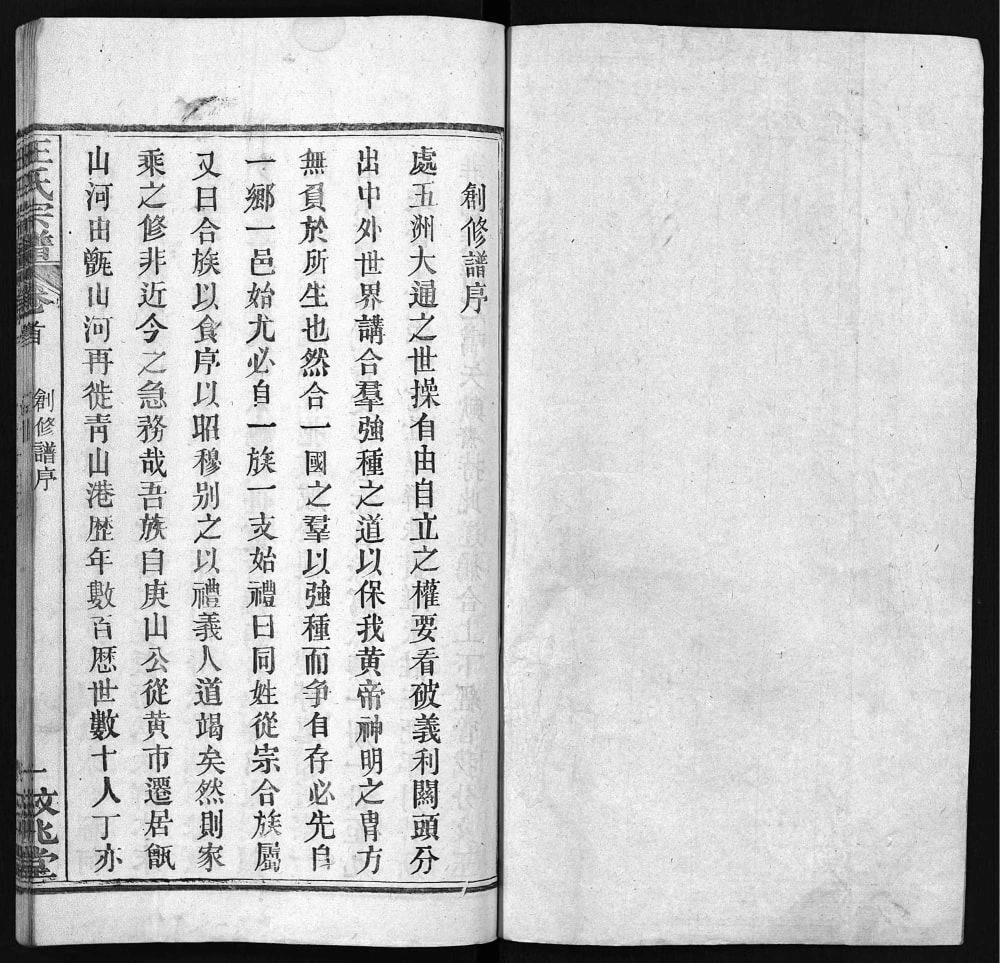 創修譜序
處五洲大通之世操自由自立之權要看破義利關頭分
出中外世界講合羣強種之道以保我黄帝神明之胄方
無負於所生也然合一國之羣以強種而争自存必先自
一鄉一邑始尤必自一族一支始禮曰同姓從宗合族屬
又曰合族以食序以昭穆别之以禮義人道竭矣然則家
乘之修非近今之急務哉吾族自庚山公從黄市遷居甑
山河由甑山河再徙靑山港歴年數百歴世數十人丁亦
王氏宗譜
卷首
創修譜序
一